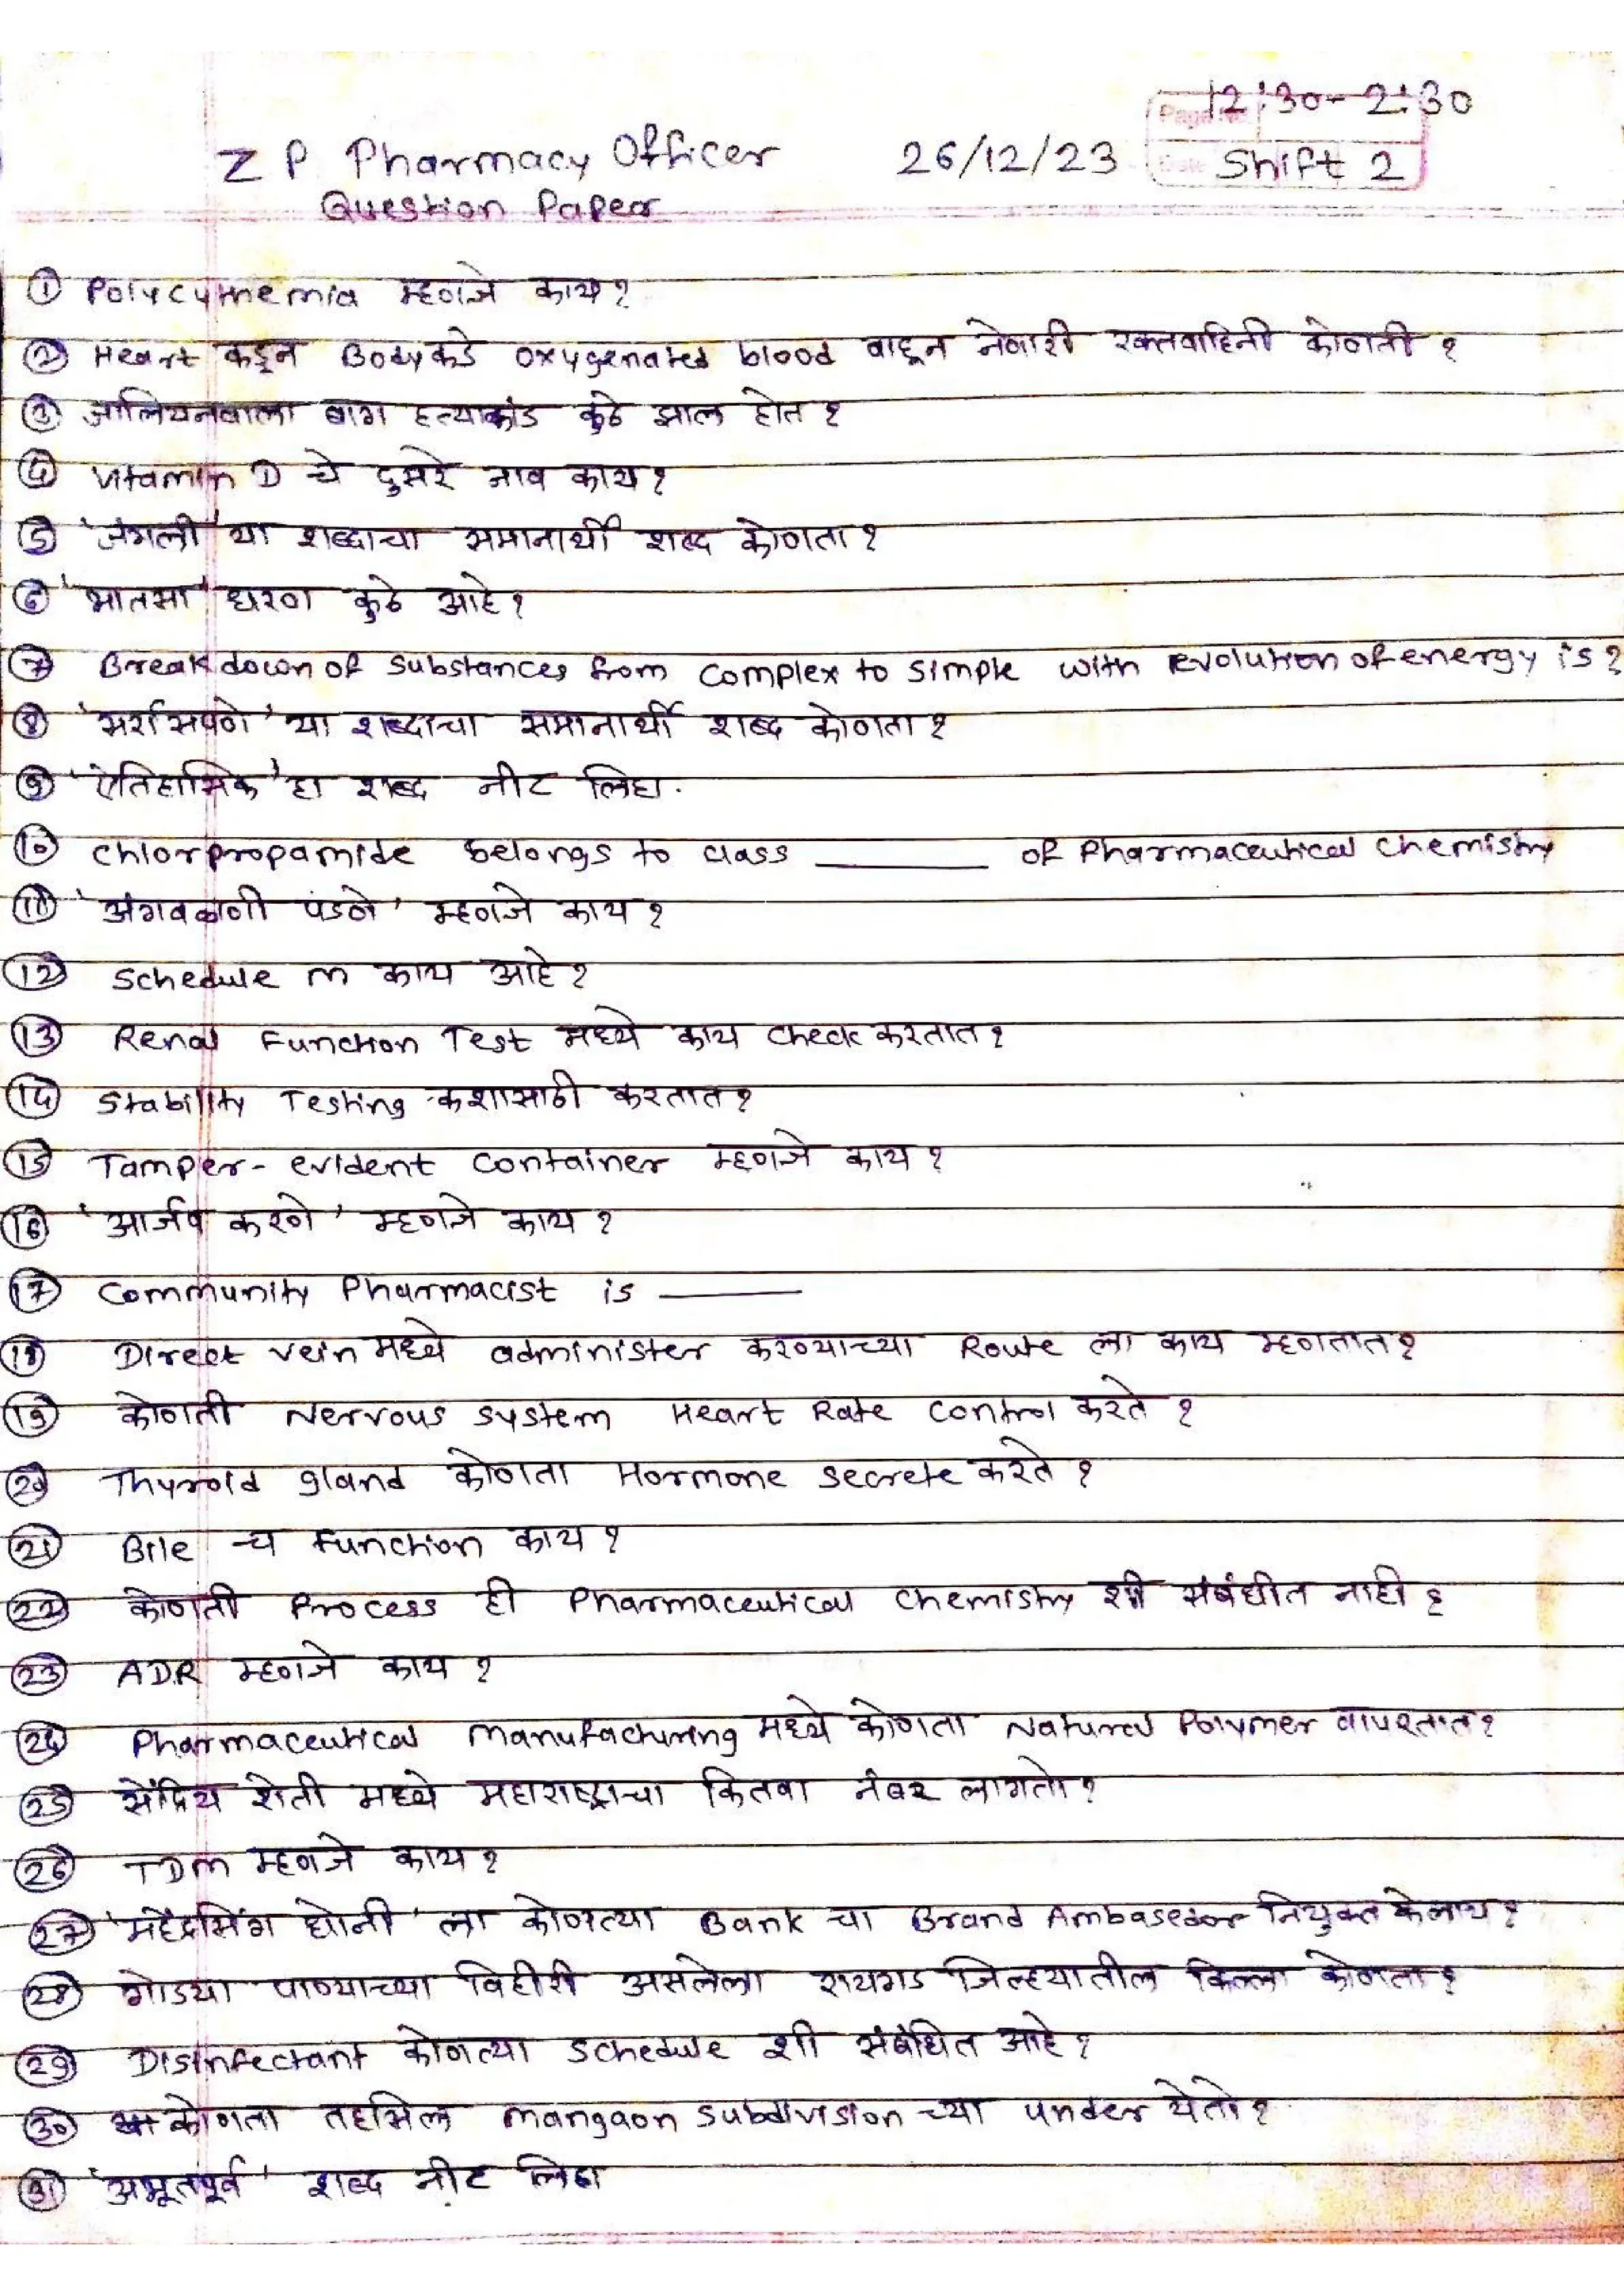 12:30-2:30
Z P Pharmacy Officer 26/12/23 Shift 2
Question Paper
① Polycythemia म्हणजे काय?
② Heart कडून Body कडे oxygenated blood वाहून नेणारी रक्तवाहिनी कोणती?
③ जालियनवाला बाग हत्याकांड कुठे झाल होत?
④ Vitamin D चे दुसरे नाव काय?
⑤ 'जंगली' या शब्दाचा समानार्थी शब्द कोणता?
⑥ 'भातसा' धरण कुठे आहे?
⑦ Breakdown of substances from complex to simple with evolution of energy is?
⑧ या शब्दाचा समानार्थी शब्द कोणता?
⑨ 'ऐतिहासिक' हा शब्द नीट लिहा.
⑩ Chlorpropamide belongs to class ______ of Pharmaceutical Chemistry
⑪ 'अंगवळणी पडणे' म्हणजे काय?
⑫ Schedule M काय आहे?
⑬ Renal Function Test मध्ये काय check करतात?
⑭ Stability Testing कशासाठी करतात?
⑮ Tamper-evident container म्हणजे काय?
⑯ 'आर्जव करणे' म्हणजे काय?
⑰ Community Pharmacist is ______
⑱ Direct vein मध्ये administer करण्याच्या Route ला काय म्हणतात?
⑲ कोणती Nervous system Heart Rate control करते?
⑳ Thyroid gland कोणता Hormone secrete करते?
㉑ Bile च function काय?
㉒ कोणती Process ही Pharmaceutical chemistry शी संबंधीत नाही?
㉓ ADR म्हणजे काय?
㉔ Pharmaceutical manufacturing मध्ये कोणता Natural Polymer वापरतात?
㉕ सेंद्रिय शेती मध्ये महाराष्ट्राचा कितवा नंबर लागतो?
㉖ TDM म्हणजे काय?
㉗ 'महेंद्रसिंग धोनी' ला कोणत्या Bank चा Brand Ambasedor नियुक्त केलाय?
㉘ गोडया पाण्याच्या विहीरी असलेला रायगड जिल्हयातील किल्ला कोणता?
㉙ Disinfectant कोणत्या schedule शी संबंधित आहे?
㉚ कोणता तहसिल mangaon subdivision च्या under येतो?
㉛ 'अभूतपूर्व' शब्द नीट लिहा